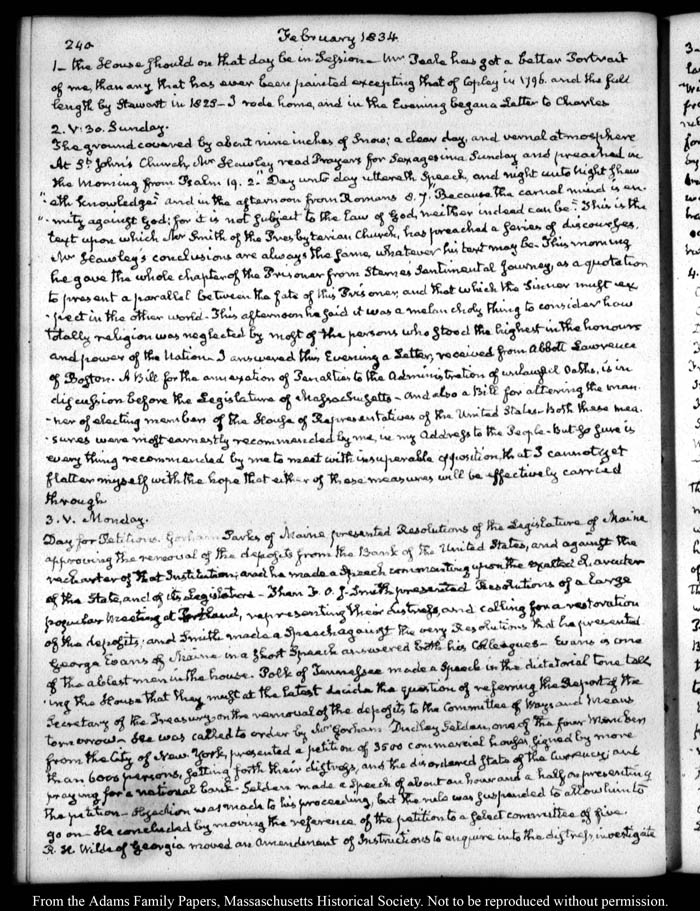 240
February 1834
1_ the House should on that day be in Session_ Mr Peale has got a better Portrait
of me, than any that has ever been painted excepting that of Copley in 1796. and the full
length by Stewart in 1825_ I rode home, and in the Evening began a Letter to Charles
2. V:30. Sunday.
The ground covered by about nine inches of Snow; a clear day, and vernal atmosphere
At St. John's Church, Mr Hawley read Prayers for Sexagesima Sunday and preached in
the Morning from Psalm 19. 2. "Day unto day uttereth Speech, and night unto night shew
"eth knowledge" and in the afternoon from Romans 8. 7. "Because the carnal mind is en-
"mity against God; for it is not subject to the law of God, neither indeed can be." This is the
text upon which Mr Smith of the Presbyterian Church, has preached a series of discourses.
Mr Hawley's conclusions are always the same, whatever his text may be. This morning
he gave the whole chapter of the Prisoner from Sterne's Sentimental Journey, as a quotation
to present a parallel between the fate of this Prisoner, and that which the Sinner must ex
-pect in the other world_ This afternoon he said it was a melancholy thing to consider how
totally religion was neglected by most of the persons who stood the highest in the honours
and power of the Nation_ I answered this Evening a Letter, received from Abbott Lawrence
of Boston. A Bill for the annexation of Penalties to the Administration of unlawful Oaths, is in
discussion before the Legislature of Massachusetts_ and also a Bill for altering the man
-ner of electing members of the House of Representatives of the United States_ Both these mea
-sures were most earnestly recommended by me, in my Address to the People_ But so sure is
every thing recommended by me to meet with insuperable opposition, that I cannot yet
flatter myself with the hope that either of these measures will be effectively carried
through.
3. V. Monday.
Day for Petitions. Gorham Parks of Maine presented Resolutions of the Legislature of Maine
approving the removal of the deposits from the Bank of the United States, and against the
recharter of that Institution; and he made a Speech commenting upon the exalted Character
of the State, and of its Legislature_ Then F. O. J. Smith presented Resolutions of a large
popular Meeting at Portland, representing their distress, and calling for a restoration
of the deposits; and Smith made a Speech against the very Resolutions that he presented
George Evans of Maine in a short Speech answered both his Colleagues_ Evans is one
of the ablest men in the house. Polk of Tennessee made a Speech in the dictatorial tone tell
-ing the House that they must at the latest decide the question of referring the Report of the
Secretary of the Treasury on the removal of the deposits to the Committee of Ways and Means
tomorrow_ He was called to order by Mr Gorham Dudley Selden, one of the four Members
from the City of New York, presented a petition of 3500 commercial houses, signed by more
than 6000 persons, setting forth their distress, and the disordered State of the Currency; and
praying for a national bank_ Selden made a Speech of about an hour and a half, on presenting
the petition_ Objection was made to his proceeding, but the rule was suspended to allow him to
go on_ He concluded by moving the reference of the petition to a select committee of five.
R. H. Wilde of Georgia moved an Amendment of Instructions to enquire into the distress, investigate
From the Adams Family Papers, Massachusetts Historical Society. Not to be reproduced without permission.